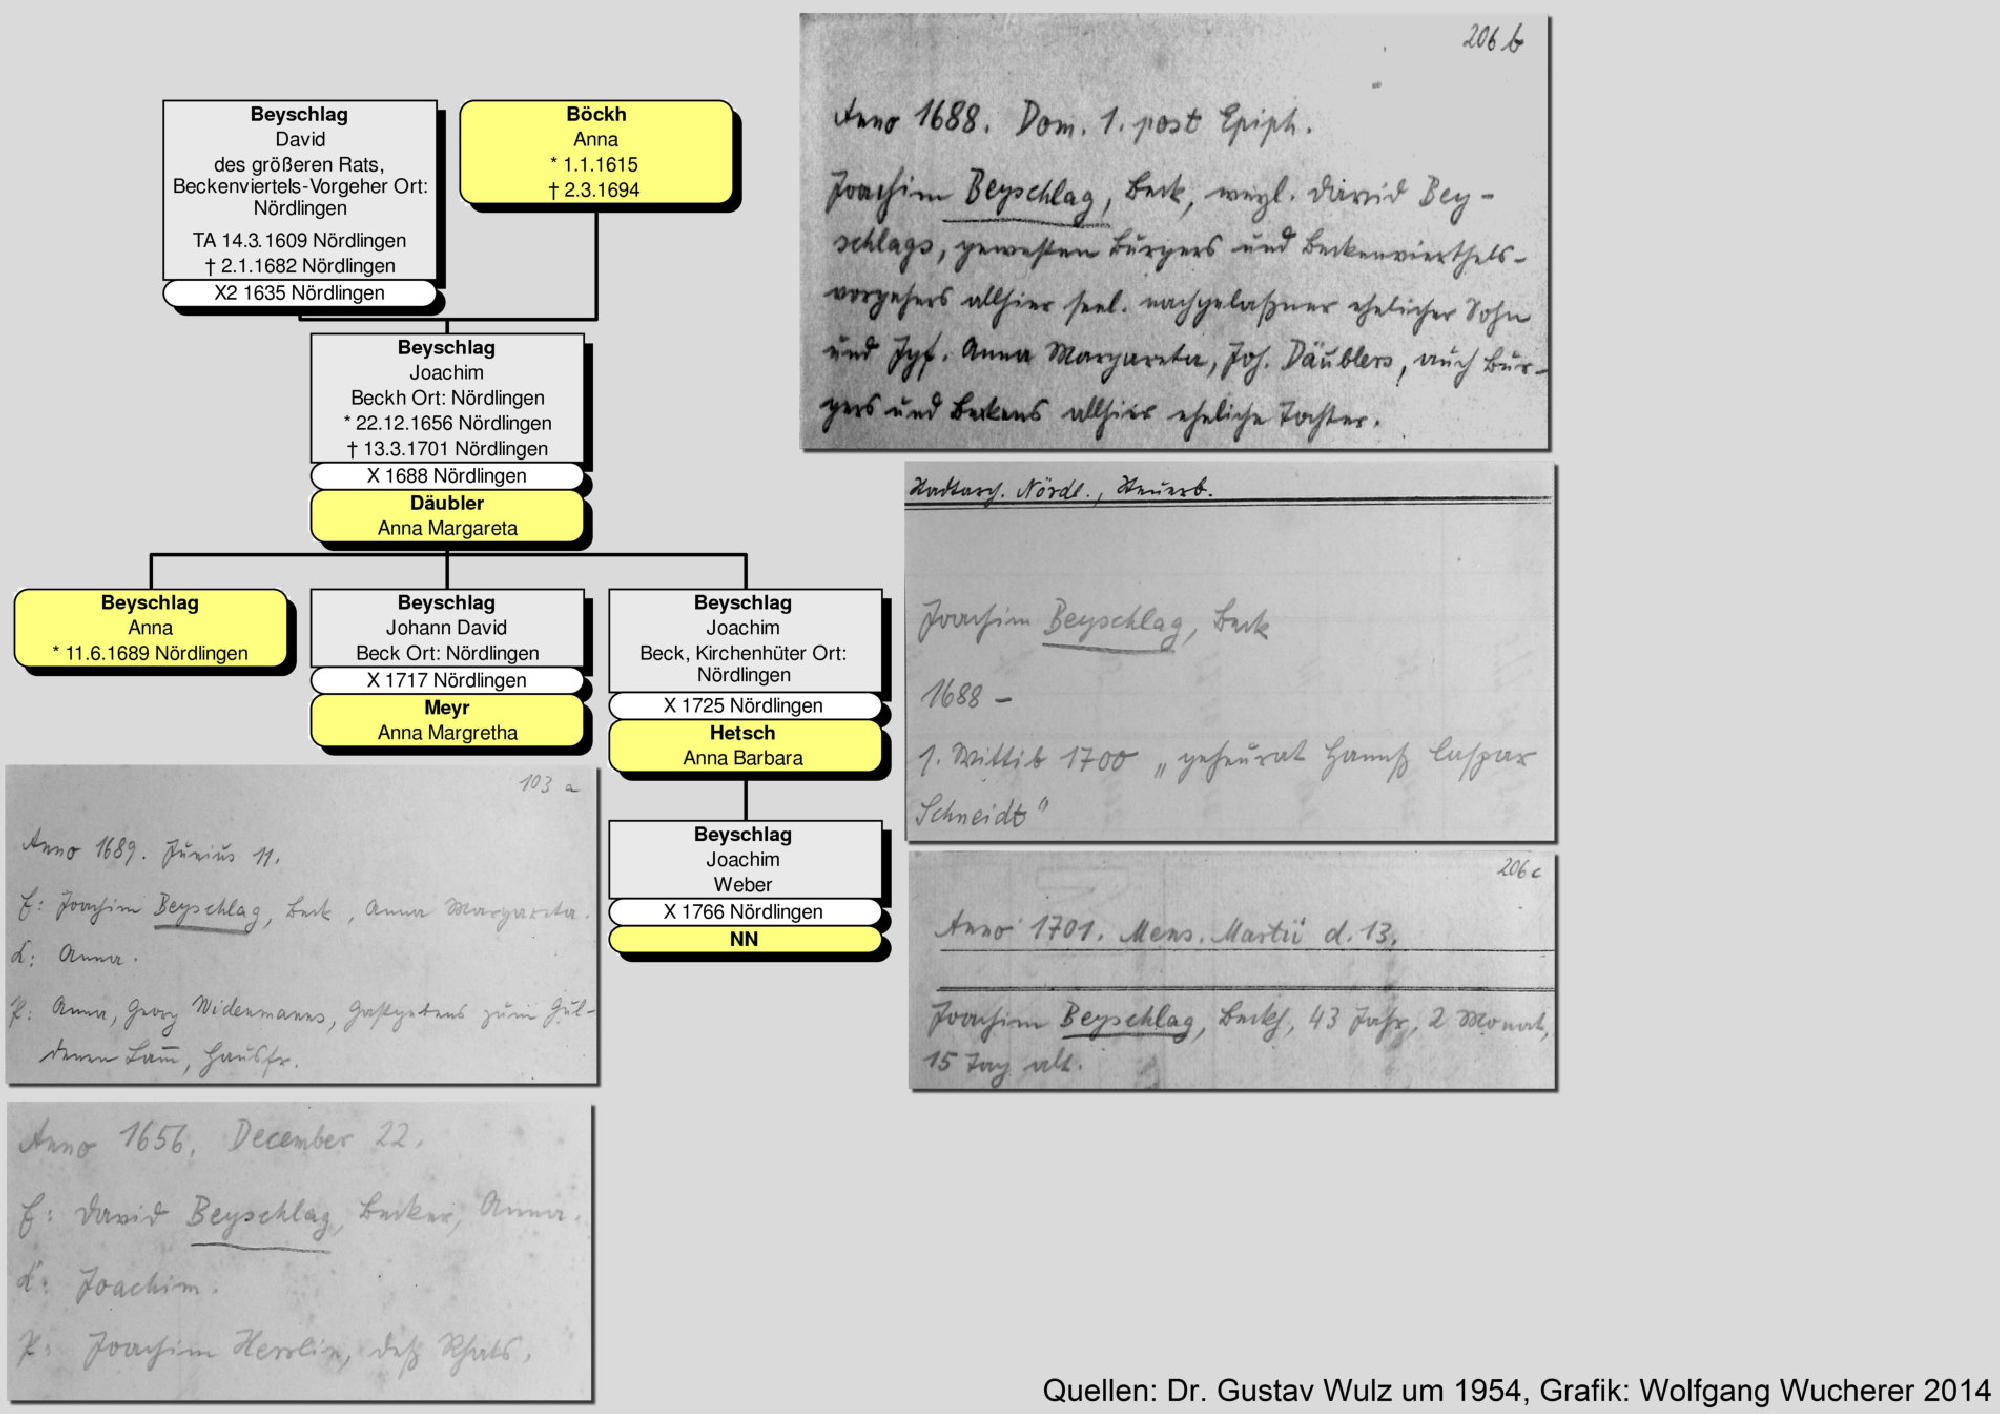 Beyschlag
David
des größeren Rats,
Beckenviertels-Vorgeher Ort:
Nördlingen
TA 14.3.1609 Nördlingen
† 2.1.1682 Nördlingen
X2 1635 Nördlingen
Böckh
Anna
* 1.1.1615
† 2.3.1694
Beyschlag
Joachim
Beckh Ort: Nördlingen
* 22.12.1656 Nördlingen
† 13.3.1701 Nördlingen
X 1688 Nördlingen
Däubler
Anna Margareta
Beyschlag
Anna
* 11.6.1689 Nördlingen
Beyschlag
Johann David
Beck Ort: Nördlingen
X 1717 Nördlingen
Meyr
Anna Margretha
Beyschlag
Joachim
Beck, Kirchenhüter Ort:
Nördlingen
X 1725 Nördlingen
Hetsch
Anna Barbara
Beyschlag
Joachim
Weber
X 1766 Nördlingen
NN
206 b
Anno 1688. Dom. 1. post Epiph.
Joachim Beyschlag, Beck, weyl. David Bey-
schlags, gewesten Burgers und Beckenvierthels-
vorgehers allhier seel. nachgelaßner ehelicher Sohn
und Jgf. Anna Margareta, Joh. Däublers, auch Bur-
gers und Beckens allhier eheliche Tochter.
Stadtarch. Nördl., Steuerb.
Joachim Beyschlag, Beck
1688 –
1. Wittib 1700 „geheurat Hannß Caspar
Schneidt"
206 c
Anno 1701. Mens. Martii d. 13.
Joachim Beyschlag, Beckh, 43 Jahr, 2 Monat,
15 Tag alt.
103 a
Anno 1689. Junius 11.
E: Joachim Beyschlag, Beck, Anna Margareta.
K: Anna.
P: Anna, Georg Widenmanns, Gastgebens zum Gül-
denen Lam̄, Hausfr.
Anno 1656. December 22.
E: David Beyschlag, Becker, Anna.
K: Joachim.
P: Joachim deß Rhats.
Quellen: Dr. Gustav Wulz um 1954, Grafik: Wolfgang Wucherer 2014